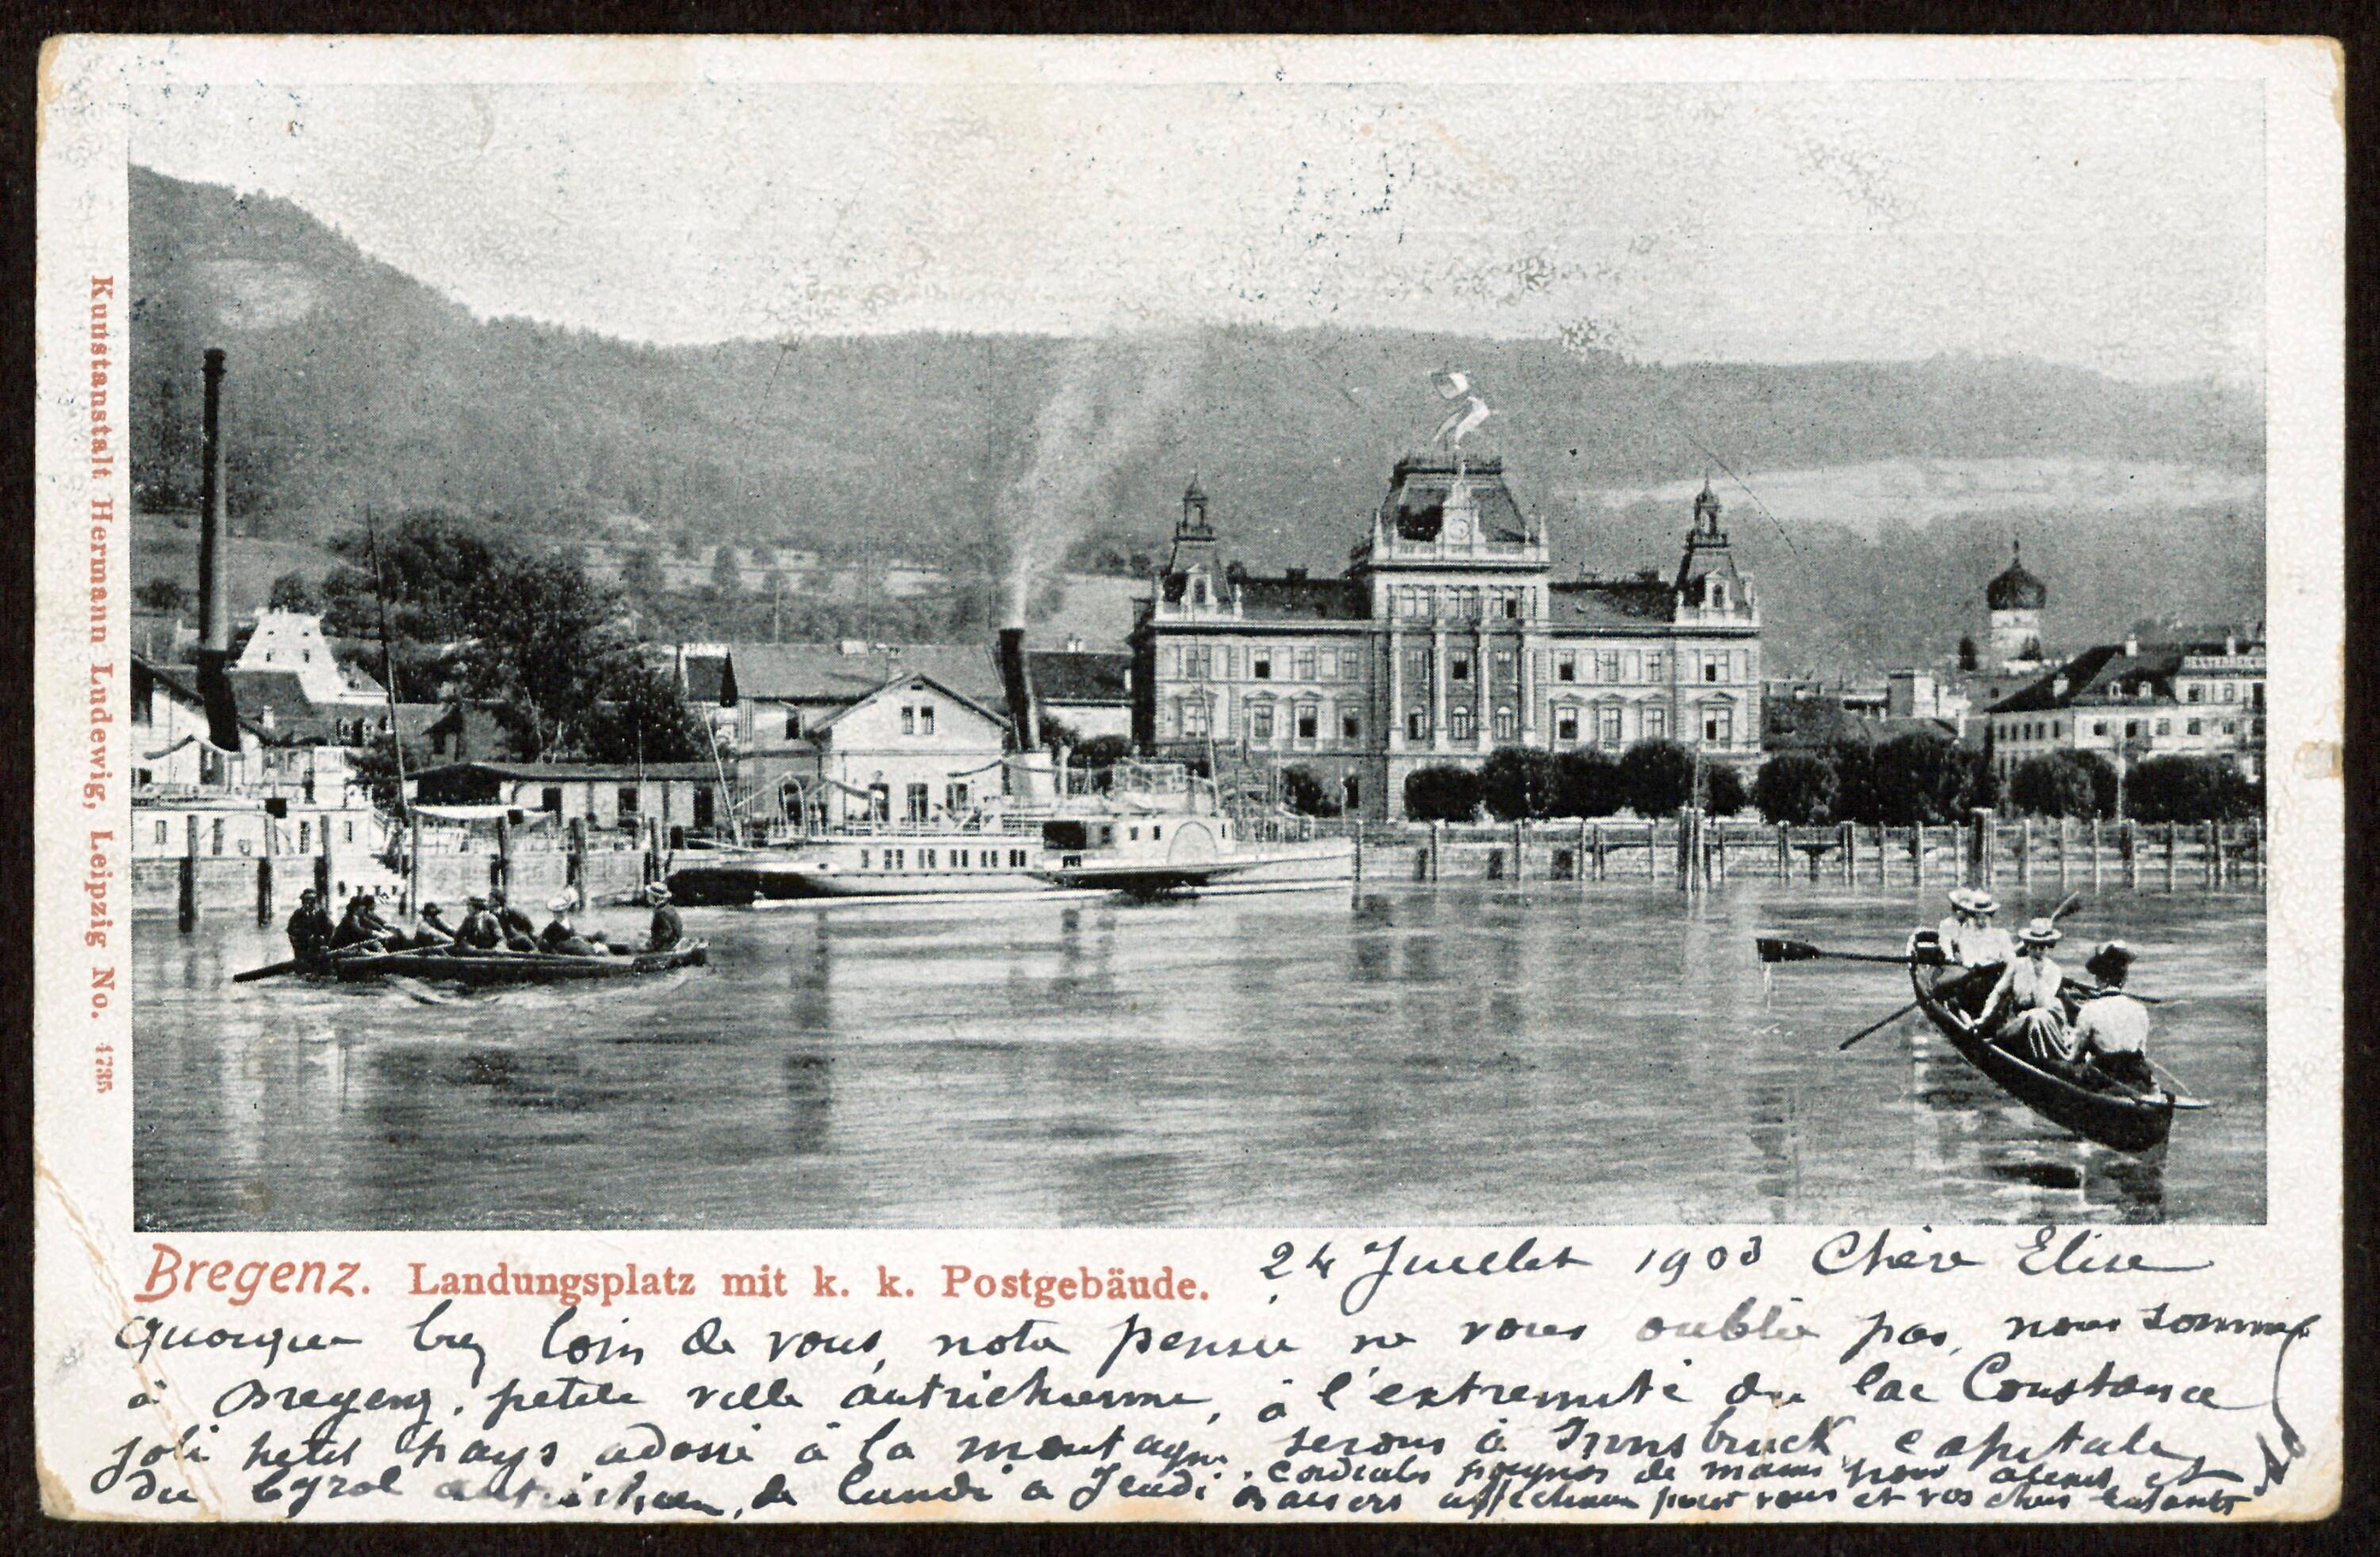 Kunstanstalt Hermann Ludewig, Leipzig No. 4735
Bregenz. Landungsplatz mit k. k. Postgebäude.
24 Juillet 1903 Chère Elise
quoique loin de vous, notre pensée ne vous oublie pas, nous sommes
à Bregenz, petite ville autrichienne, à l'extremité du lac Constance
joli petit pays adossé à la montagne, serons à Innsbruck, capitale
du Tyrol autrichien, de lundi a Jeudi. cordiales poignées de mains pour et
baisers affectueux pour vous et vos chers enfants